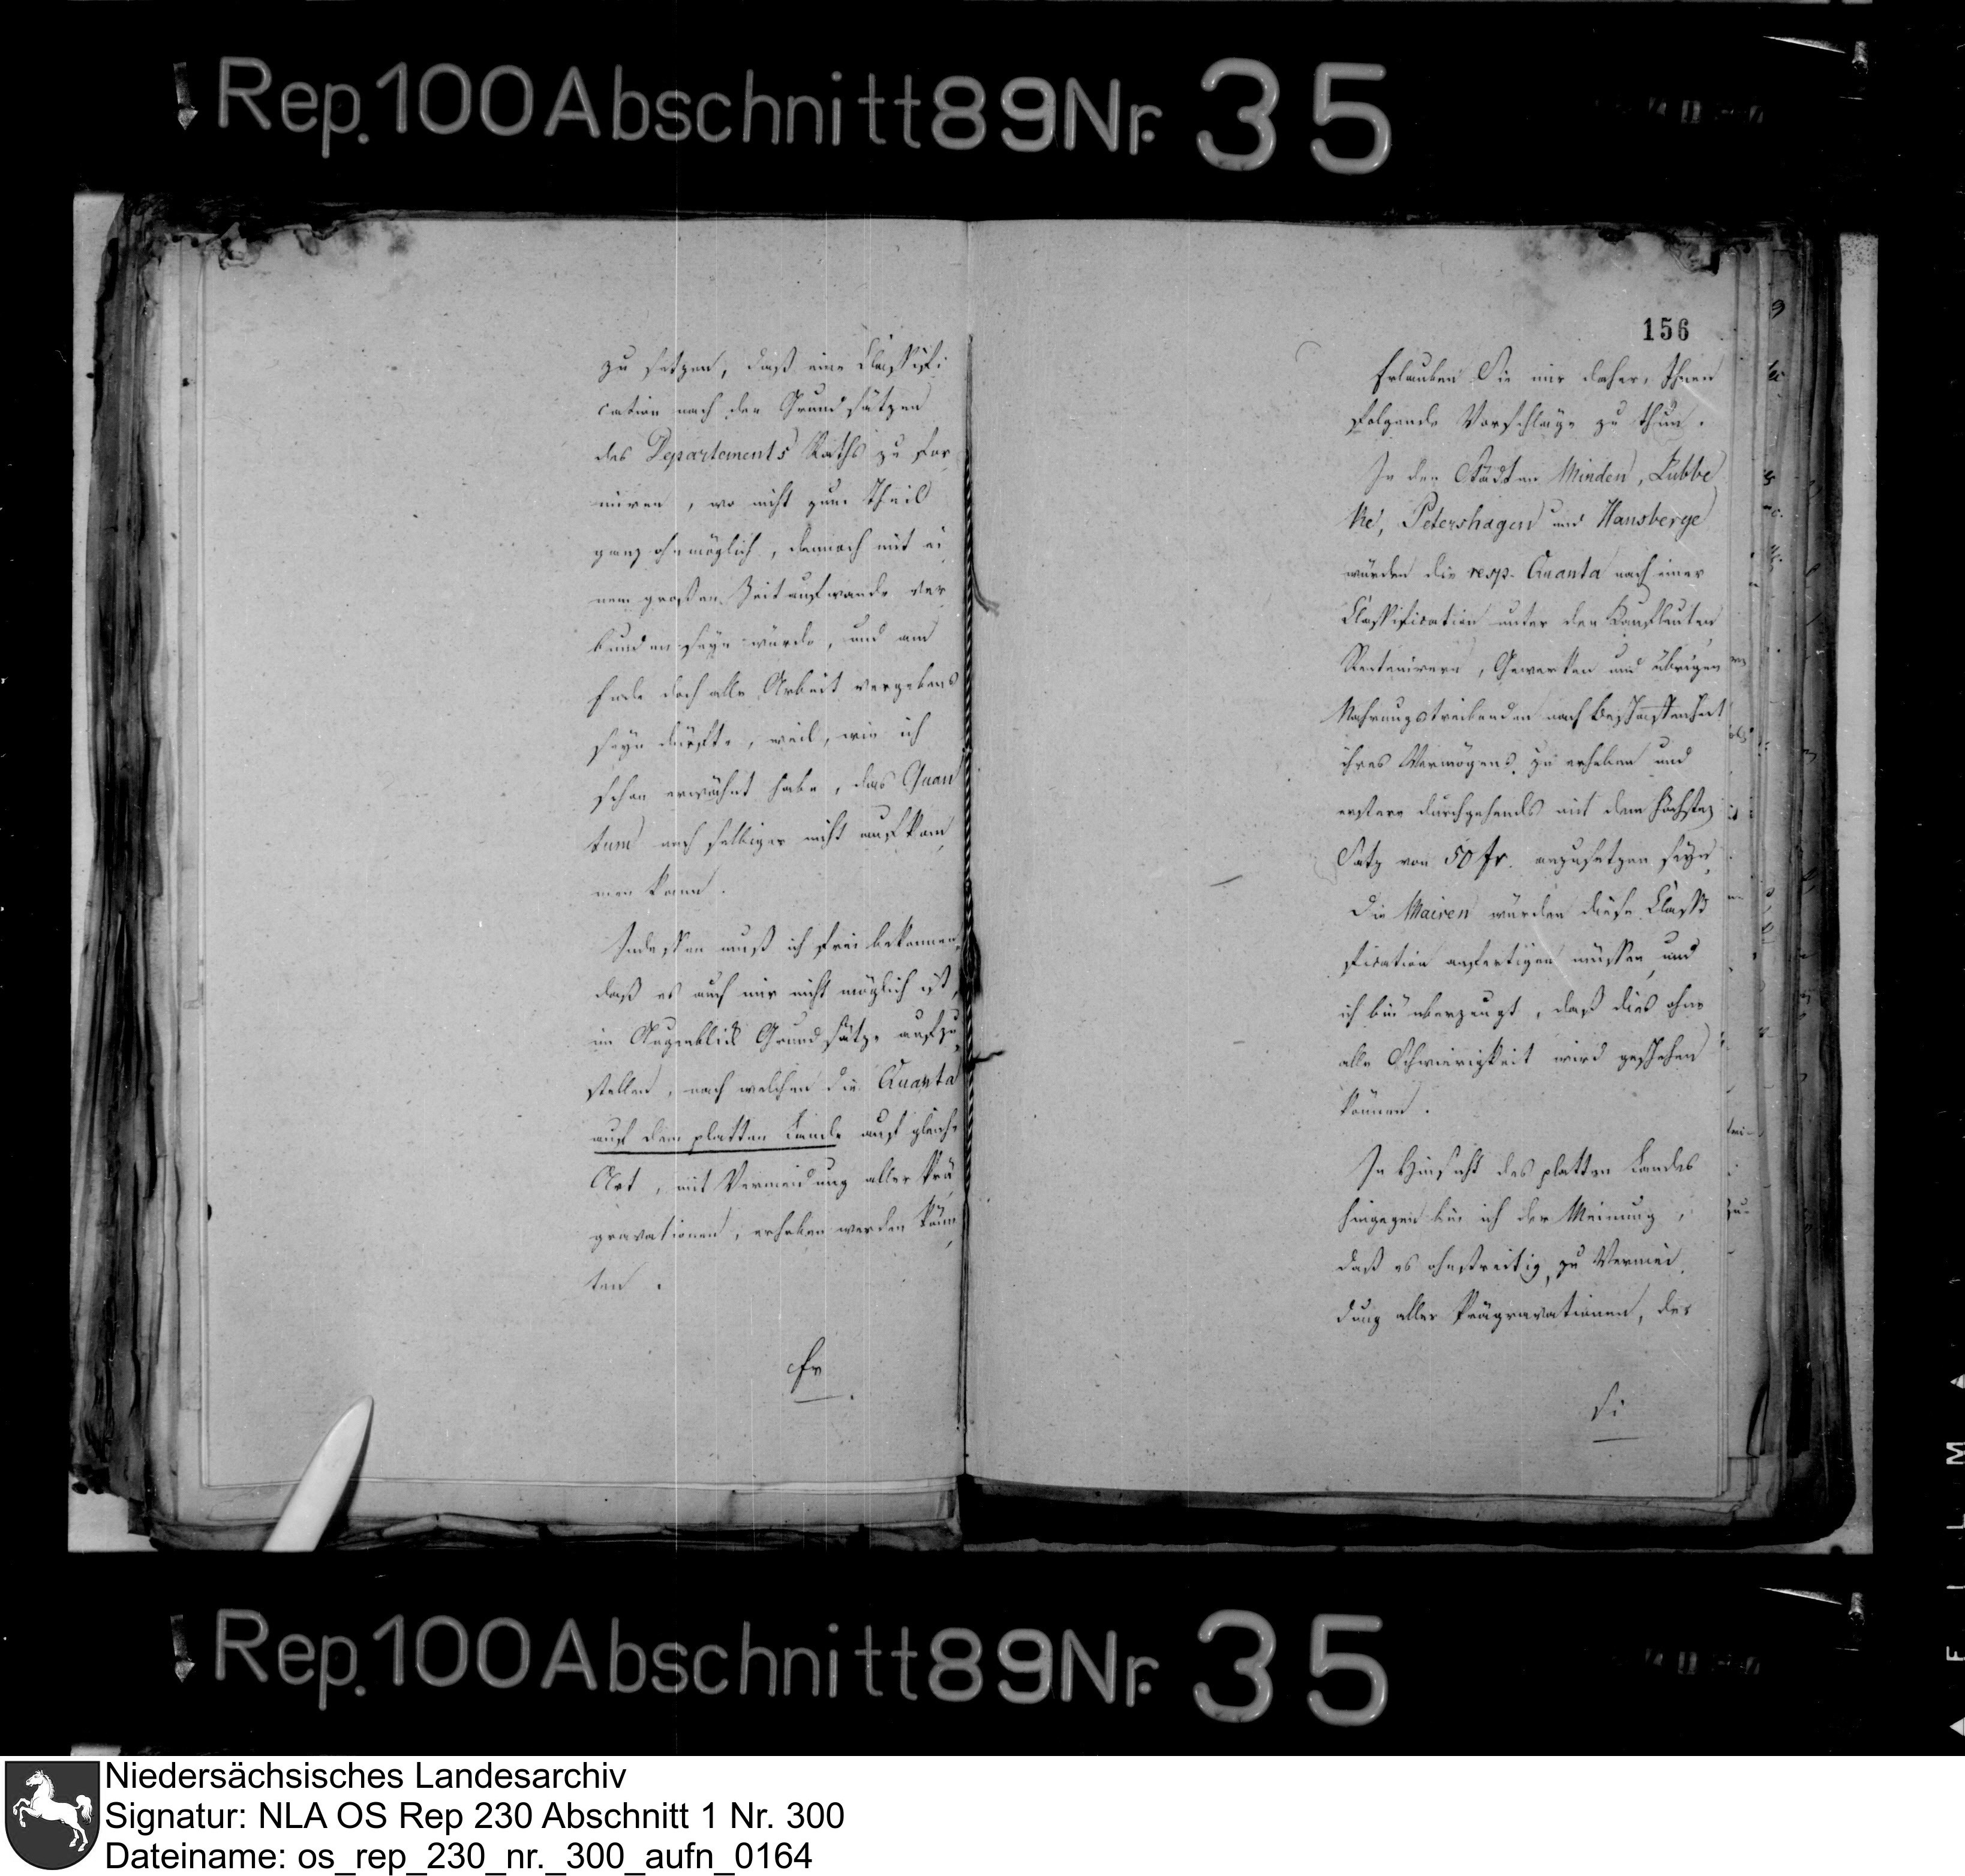 Rep. 100 Abschnitt 89 Nr. 35
zu setzen, daß eine Classifi
cation nach den Grundsätzen
des Departements Raths zu for
miren, wo nicht zum Theil
ganz ohnmöglich, dennoch mit ei
nem großen Zeitaufwande ver
bunden seyn würde, und am
Ende doch alle Arbeit vergebens
seyn dürfte, weil, wie ich
schon erwähnt habe, das Quan
tum nach selbiger nicht aufkom
men kann.
Indessen muß ich frei bekennen,
daß es auch mir nicht möglich ist,
im Augenblick Grundsätze aufzu
stellen, nach welchen die Quanta
auf dem platten Lande auf gleiche
Art, mit Vermeidung aller Prä
gravationen, erhoben werden könn
ten.
Er
156
Erlauben Sie mir daher, Ihnen
folgende Vorschläge zu thun.
In den Städten Minden, Lübbe
ke, Petershagen und Hausberge
würden die resp. Quanta nach einer
Classification unter den Kaufleuten
Rentenirern, Gewerken und übrigen
Nahrungstreibenden nach Beschaffenheit
ihres Vermögens zu erheben und
erstere durchgehends mit dem höchsten
Satz von 50 fr. anzusetzen seyn.
Die Mairen würden diese Classi
fication anfertigen müssen, und
ich bin überzeugt, daß dies ohne
alle Schwierigkeit wird geschehen
können.
In Hinsicht des platten Landes
hingegen bin ich der Meinung,
daß es ohnstreitig, zu Vermei
dung aller Prägravationen, der
Rep. 100 Abschnitt 89 Nr. 35
FILM
Niedersächsisches Landesarchiv
Signatur: NLA OS Rep 230 Abschnitt 1 Nr. 300
Dateiname: os_rep_230_nr._300_aufn_0164